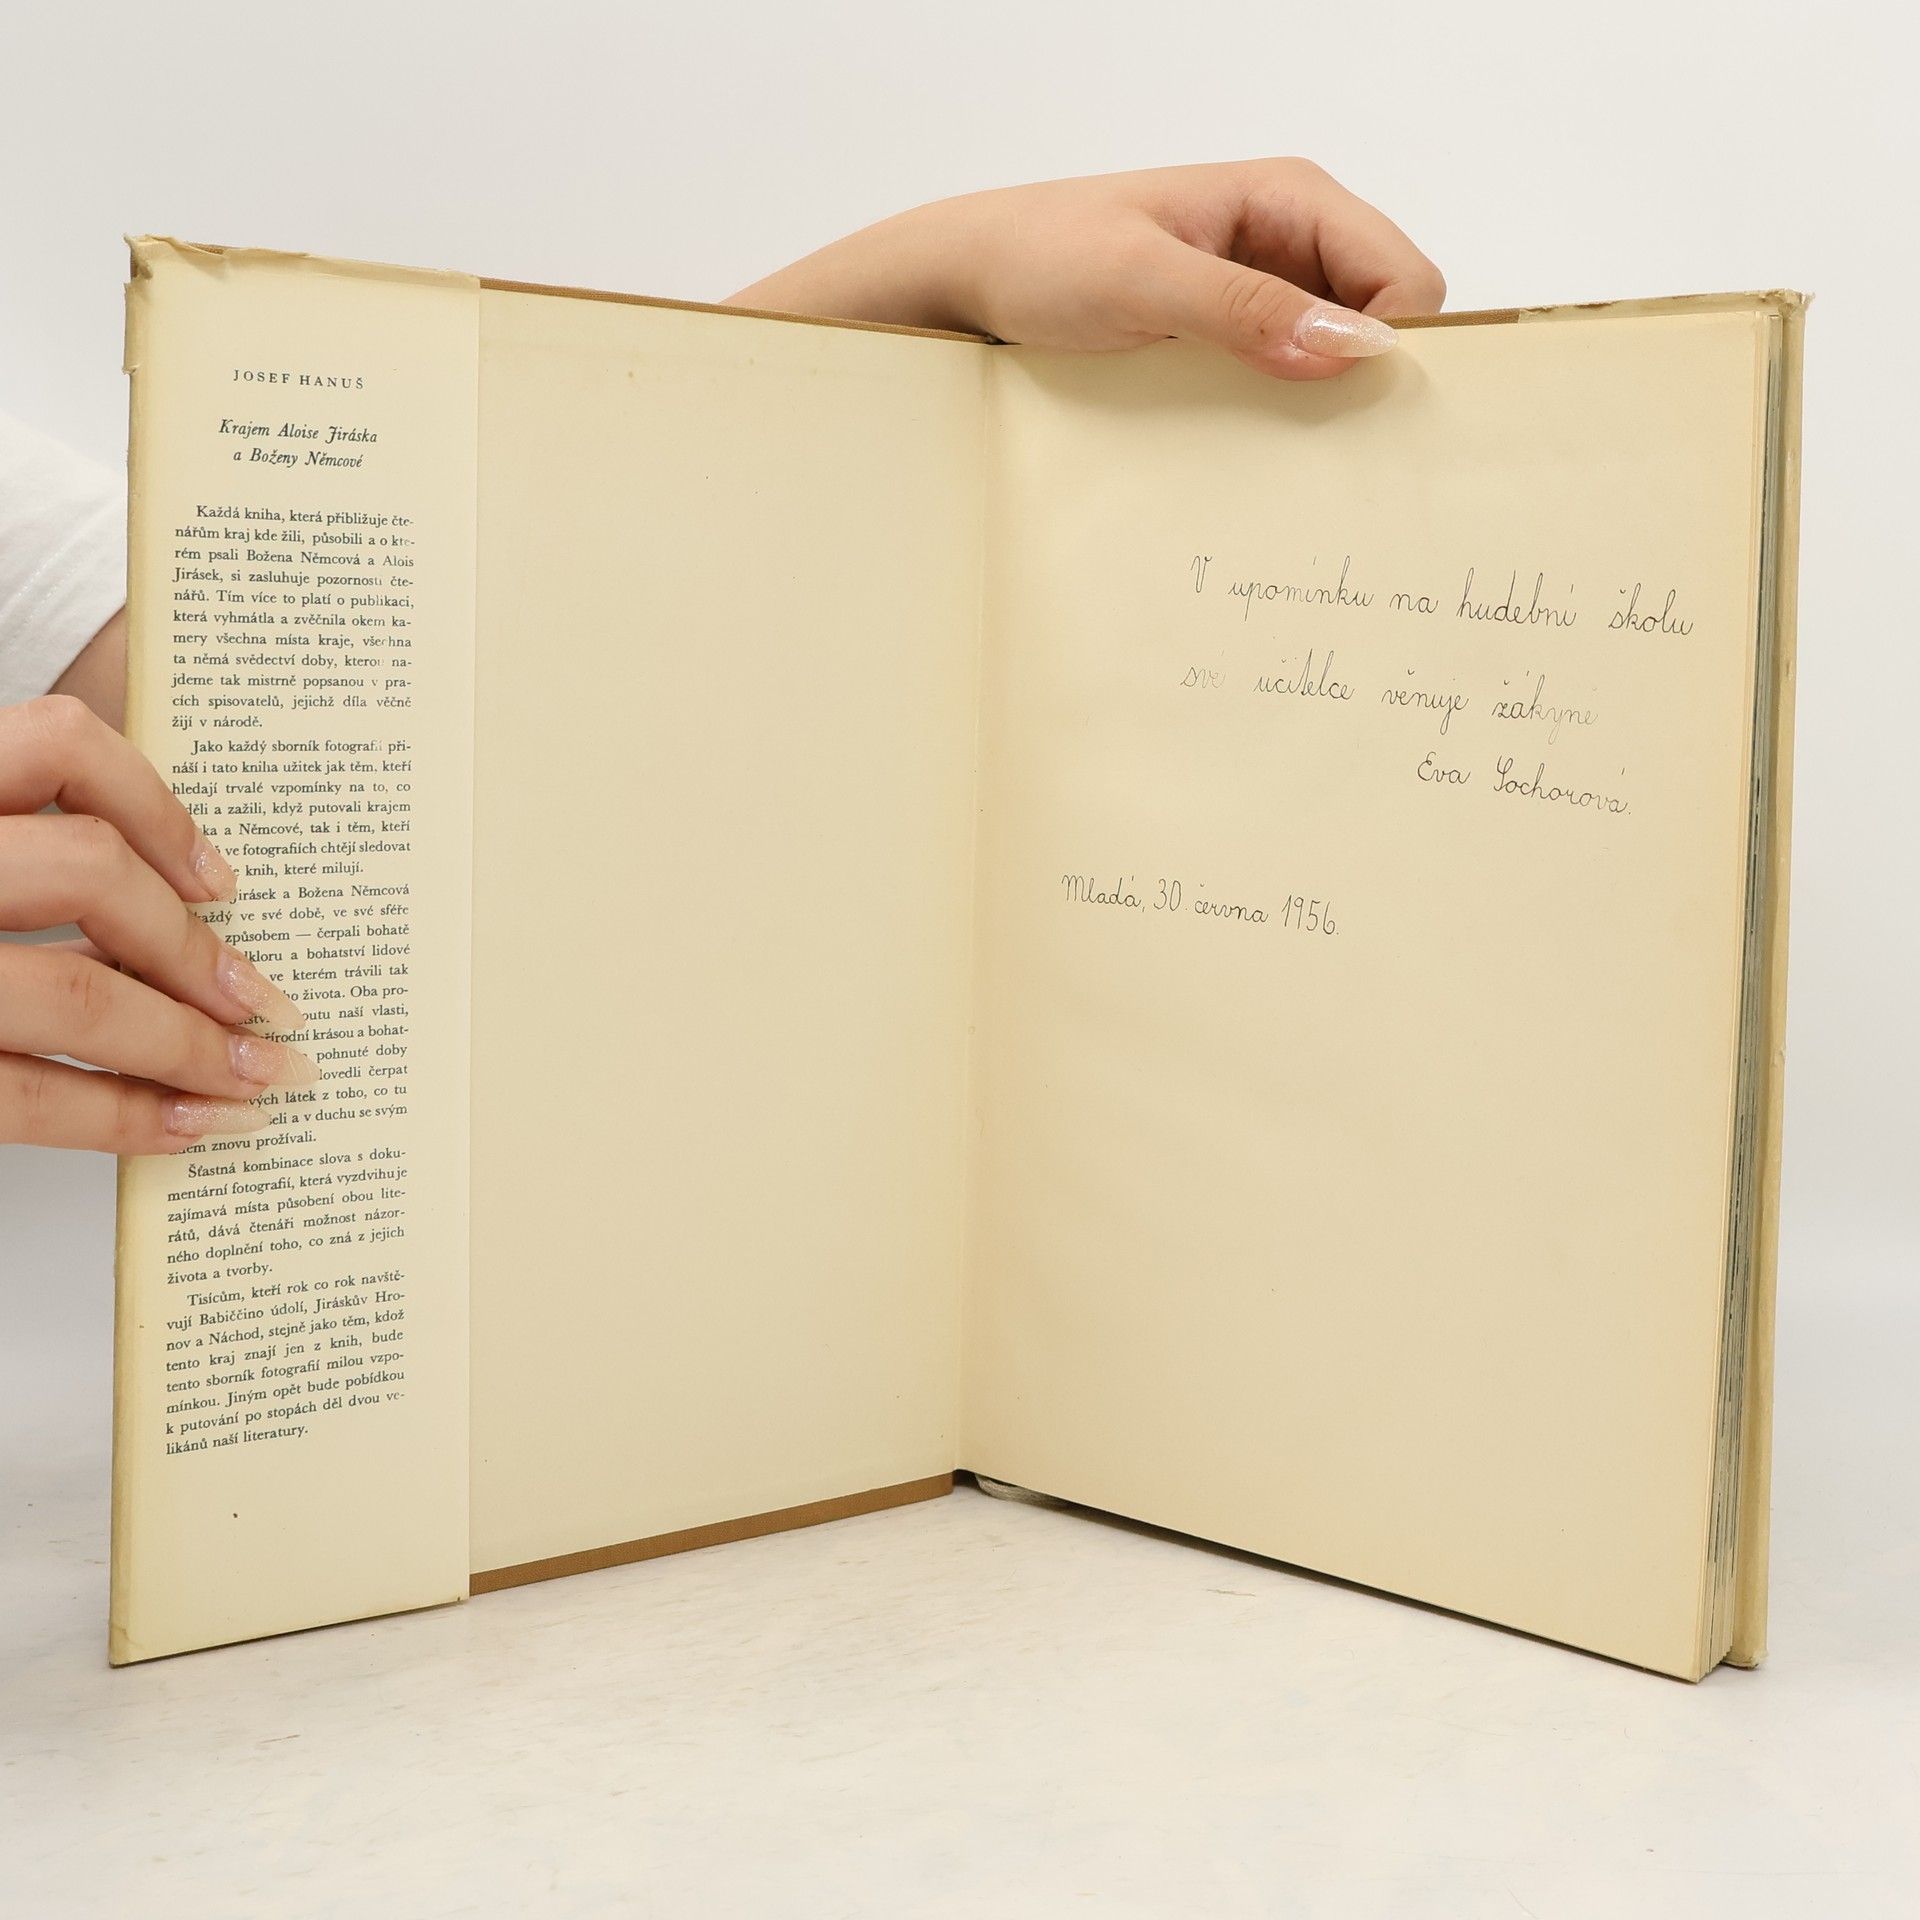 JOSEF HANUŠ
Krajem Aloise Jiráska
a Boženy Němcové
Každá kniha, která přibližuje čte-
nářům kraj kde žili, působili a o kte-
rém psali Božena Němcová a Alois
Jirásek, si zasluhuje pozornosti čte-
nářů. Tím více to platí o publikaci,
která vyhmátla a zvěčnila okem ka-
mery všechna místa kraje, všechna
ta němá svědectví doby, kterou na-
jdeme tak mistrně popsanou v pra-
cích spisovatelů, jejichž díla věčně
žijí v národě.
Jako každý sborník fotografií při-
náší i tato kniha užitek jak těm, kteří
hledají trvalé vzpomínky na to, co
děli a zažili, když putovali krajem
ka a Němcové, tak i těm, kteří
ve fotografiích chtějí sledovat
knih, které milují.
Jirásek a Božena Němcová
každý ve své době, ve své sféře
způsobem — čerpali bohatě
lkloru a bohatství lidové
ve kterém trávili tak
ho života. Oba pro-
outu naší vlasti,
přírodní krásou a bohat-
pohnuté doby
dovedli čerpat
vých látek z toho, co tu
šeli a v duchu se svým
znovu prožívali.
Šťastná kombinace slova s doku-
mentární fotografií, která vyzdvihuje
zajímavá místa působení obou lite-
rátů, dává čtenáři možnost názor-
ného doplnění toho, co zná z jejich
života a tvorby.
Tisícům, kteří rok co rok navště-
vují Babiččino údolí, Jiráskův Hro-
nov a Náchod, stejně jako těm, kdož
tento kraj znají jen z knih, bude
tento sborník fotografií milou vzpo-
mínkou. Jiným opět bude pobídkou
k putování po stopách děl dvou ve-
likánů naší literatury.
V upomínku na hudební školu
své učitelce věnuje žákyně
Eva Sochorová.
Mladá, 30. června 1956.